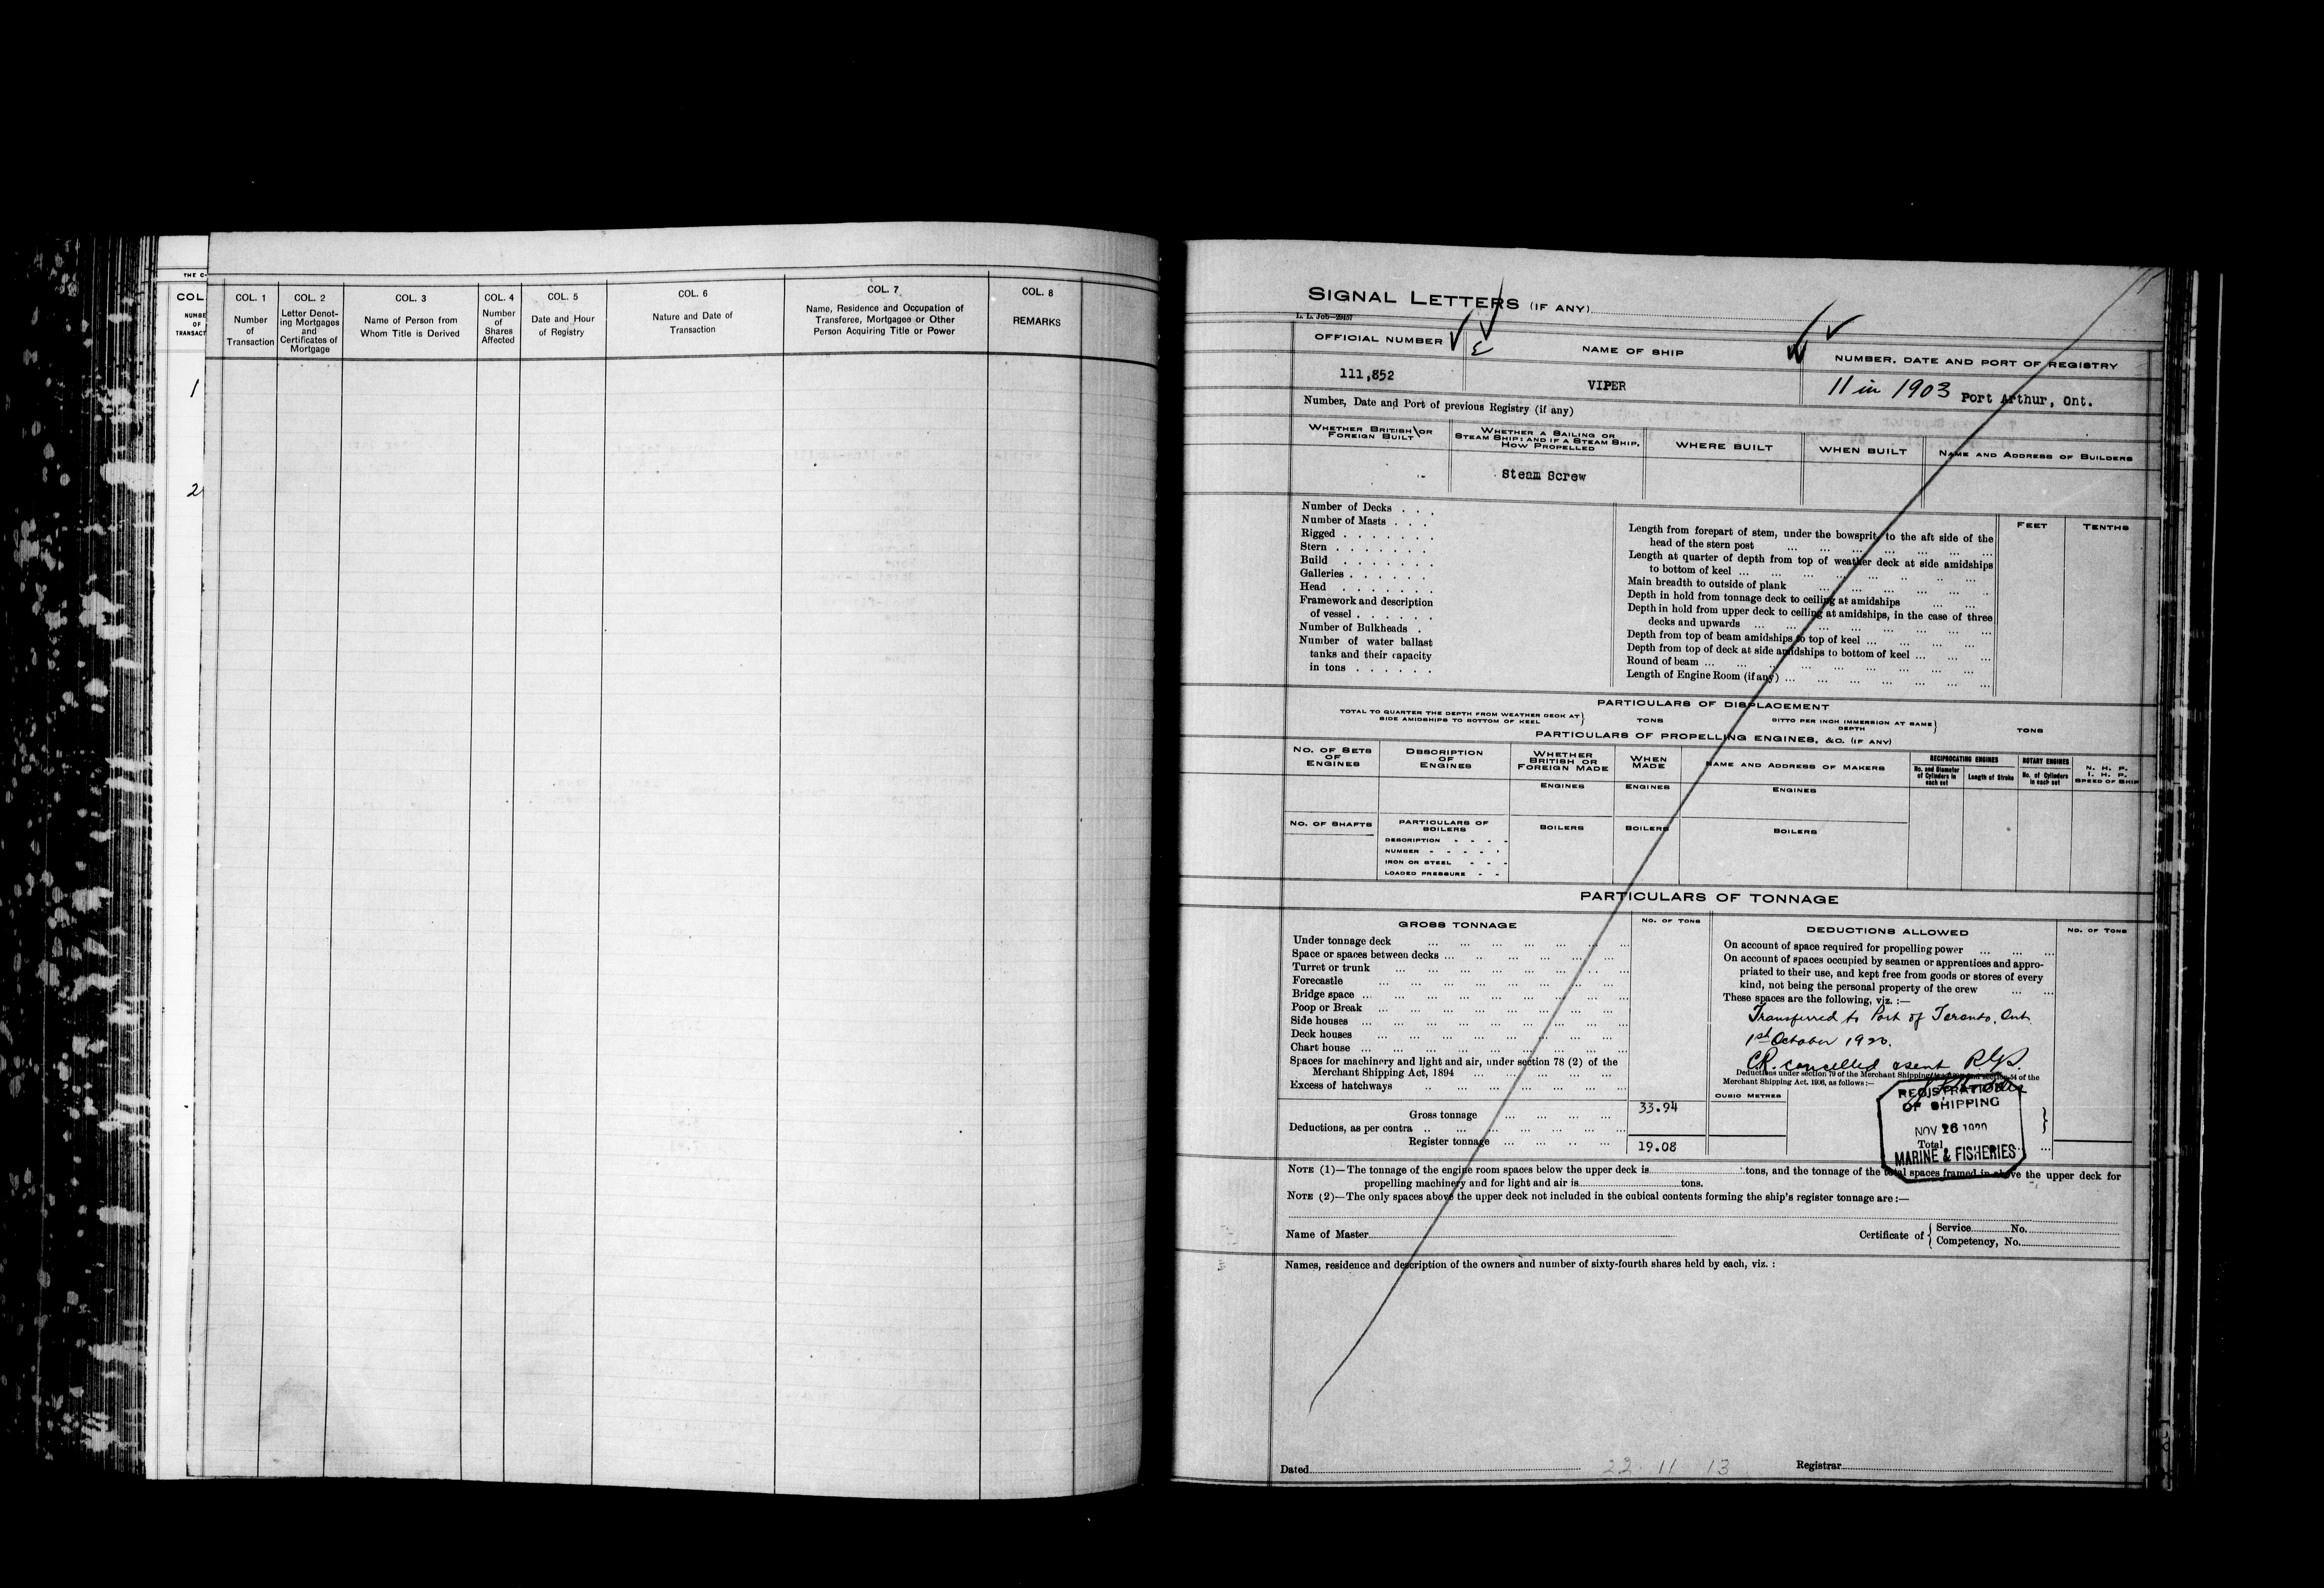 THE C
COL.
NUMBE
OF
TRANSACT
1
2
COL. 1
Number
of
Transaction
COL. 2
Letter Denot-
ing Mortgages
and
Certificates of
Mortgage
COL. 3
Name of Person from
Whom Title is Derived
COL. 4
Number
of
Shares
Affected
COL. 5
Date and Hour
of Registry
COL. 6
Nature and Date of
Transaction
COL. 7
Name, Residence and Occupation of
Transferee, Mortgagee or Other
Person Acquiring Title or Power
COL. 8
REMARKS
SIGNAL LETTERS (IF ANY)
L. L. Job—29457
OFFICIAL NUMBER
111,852
NAME OF SHIP
VIPER
NUMBER, DATE AND PORT OF REGISTRY
11 in 1903 Port Arthur, Ont.
Number, Date and Port of previous Registry (if any)
WHETHER BRITISH OR
FOREIGN BUILT
WHETHER A SAILING OR
STEAM SHIP; AND IF A STEAM SHIP,
HOW PROPELLED
Steam Screw
WHERE BUILT
WHEN BUILT
NAME AND ADDRESS OF BUILDERS
Number of Decks . . .
Number of Masts . . .
Rigged . . . . . . .
Stern . . . . . . .
Build . . . . . . .
Galleries . . . . . .
Head . . . . . . .
Framework and description
of vessel . . . . . .
Number of Bulkheads .
Number of water ballast
tanks and their capacity
in tons . . . . . .
FEET
TENTHS
Length from forepart of stem, under the bowsprit, to the aft side of the
head of the stern post
Length at quarter of depth from top of weather deck at side amidships
to bottom of keel
Main breadth to outside of plank
Depth in hold from tonnage deck to ceiling at amidships
Depth in hold from upper deck to ceiling at amidships, in the case of three
decks and upwards
Depth from top of beam amidships to top of keel
Depth from top of deck at side amidships to bottom of keel
Round of beam
Length of Engine Room (if any)
PARTICULARS OF DISPLACEMENT
TOTAL TO QUARTER THE DEPTH FROM WEATHER DECK AT
SIDE AMIDSHIPS TO BOTTOM OF KEEL
TONS
DITTO PER INCH IMMERSION AT SAME
DEPTH
TONS
PARTICULARS OF PROPELLING ENGINES, &C. (IF ANY)
NO. OF SETS
OF
ENGINES
DESCRIPTION
OF
ENGINES
WHETHER
BRITISH OR
FOREIGN MADE
WHEN
MADE
NAME AND ADDRESS OF MAKERS
RECIPROCATING ENGINES
No. and Diameter
of Cylinders in
each set
Length of Stroke
ROTARY ENGINES
No. of Cylinders
in each set
N. H. P.
I. H. P.
SPEED OF SHIP
ENGINES
ENGINES
ENGINES
NO. OF SHAFTS
PARTICULARS OF
BOILERS
DESCRIPTION
NUMBER
IRON OR STEEL
LOADED PRESSURE
BOILERS
BOILERS
BOILERS
PARTICULARS OF TONNAGE
GROSS TONNAGE
NO. OF TONS
Under tonnage deck
Space or spaces between decks
Turret or trunk
Forecastle
Bridge space
Poop or Break
Side houses
Deck houses
Chart house
Spaces for machinery and light and air, under section 78 (2) of the
Merchant Shipping Act, 1894
Excess of hatchways
Gross tonnage 33.94
Deductions, as per contra
Register tonnage 19.08
CUBIC METRES
DEDUCTIONS ALLOWED
NO. OF TONS
On account of space required for propelling power
On account of spaces occupied by seamen or apprentices and appro-
priated to their use, and kept free from goods or stores of every
kind, not being the personal property of the crew
These spaces are the following, viz. :—
Transferred to Port of Toronto, Ont
1st October 1920.
CR. cancelled &sent R.G.S.
Deductions under section 79 of the Merchant Shipping Act, 1894 and section 54 of the
Merchant Shipping Act, 1906, as follows:—
REGISTRATION
OF SHIPPING
NOV 26 1920
MARINE & FISHERIES
Total
NOTE (1)—The tonnage of the engine room spaces below the upper deck is tons, and the tonnage of the total spaces framed in above the upper deck for
propelling machinery and for light and air is tons.
NOTE (2)—The only spaces above the upper deck not included in the cubical contents forming the ship's register tonnage are:—
Name of Master
Certificate of
Service No.
Competency, No.
Names, residence and description of the owners and number of sixty-fourth shares held by each, viz. :
Dated
22 11 13
Registrar